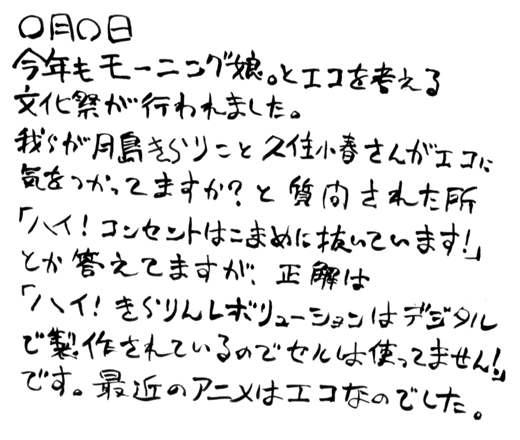 〇月〇日
今年もモーニング娘。とエコを考える
文化祭が行われました。
我らが月島きらりこと久住小春さんがエコに
気をつかってますか?と質問された所
「ハイ!コンセントはこまめに抜いています!」
とか答えてますが、正解は
「ハイ!きらりんレボリューションはデジタル
で製作されているのでセルは使ってません!」
です。最近のアニメはエコなのでした。